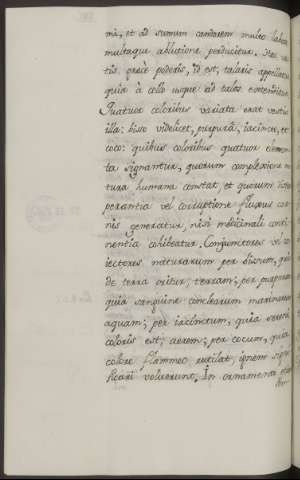 mâ, et ad sumum candorem multo labore,
multaque ablutione perducitur. Hæc ves-
tis græcè poderis, id est, talaris appellatur
quia à collo usque ad talos extenditur.
Quatuor coloribus variata erat vestis
illa: bisso videlicet, purpurâ, iacincto, et
coco: quibus coloribus quatuor elemen-
ta signantur, quorum complexione na-
tura humana constat, et quorum intem-
perantia vel corruptione fluxus car-
nis generatur, nisi medicinali conti-
nentia cohibeatur. Conjunctores vel con-
iectores naturarum per bissum, quia
de terra oritur, terram; per purpuram
quia sanguine conclearum marinarum
aquam; per iacinctum, quia aerei
coloris est; aerem; per cocum, quia
colore flammeo rutilat, ignem signi-
ficari voluerunt. In ornamento